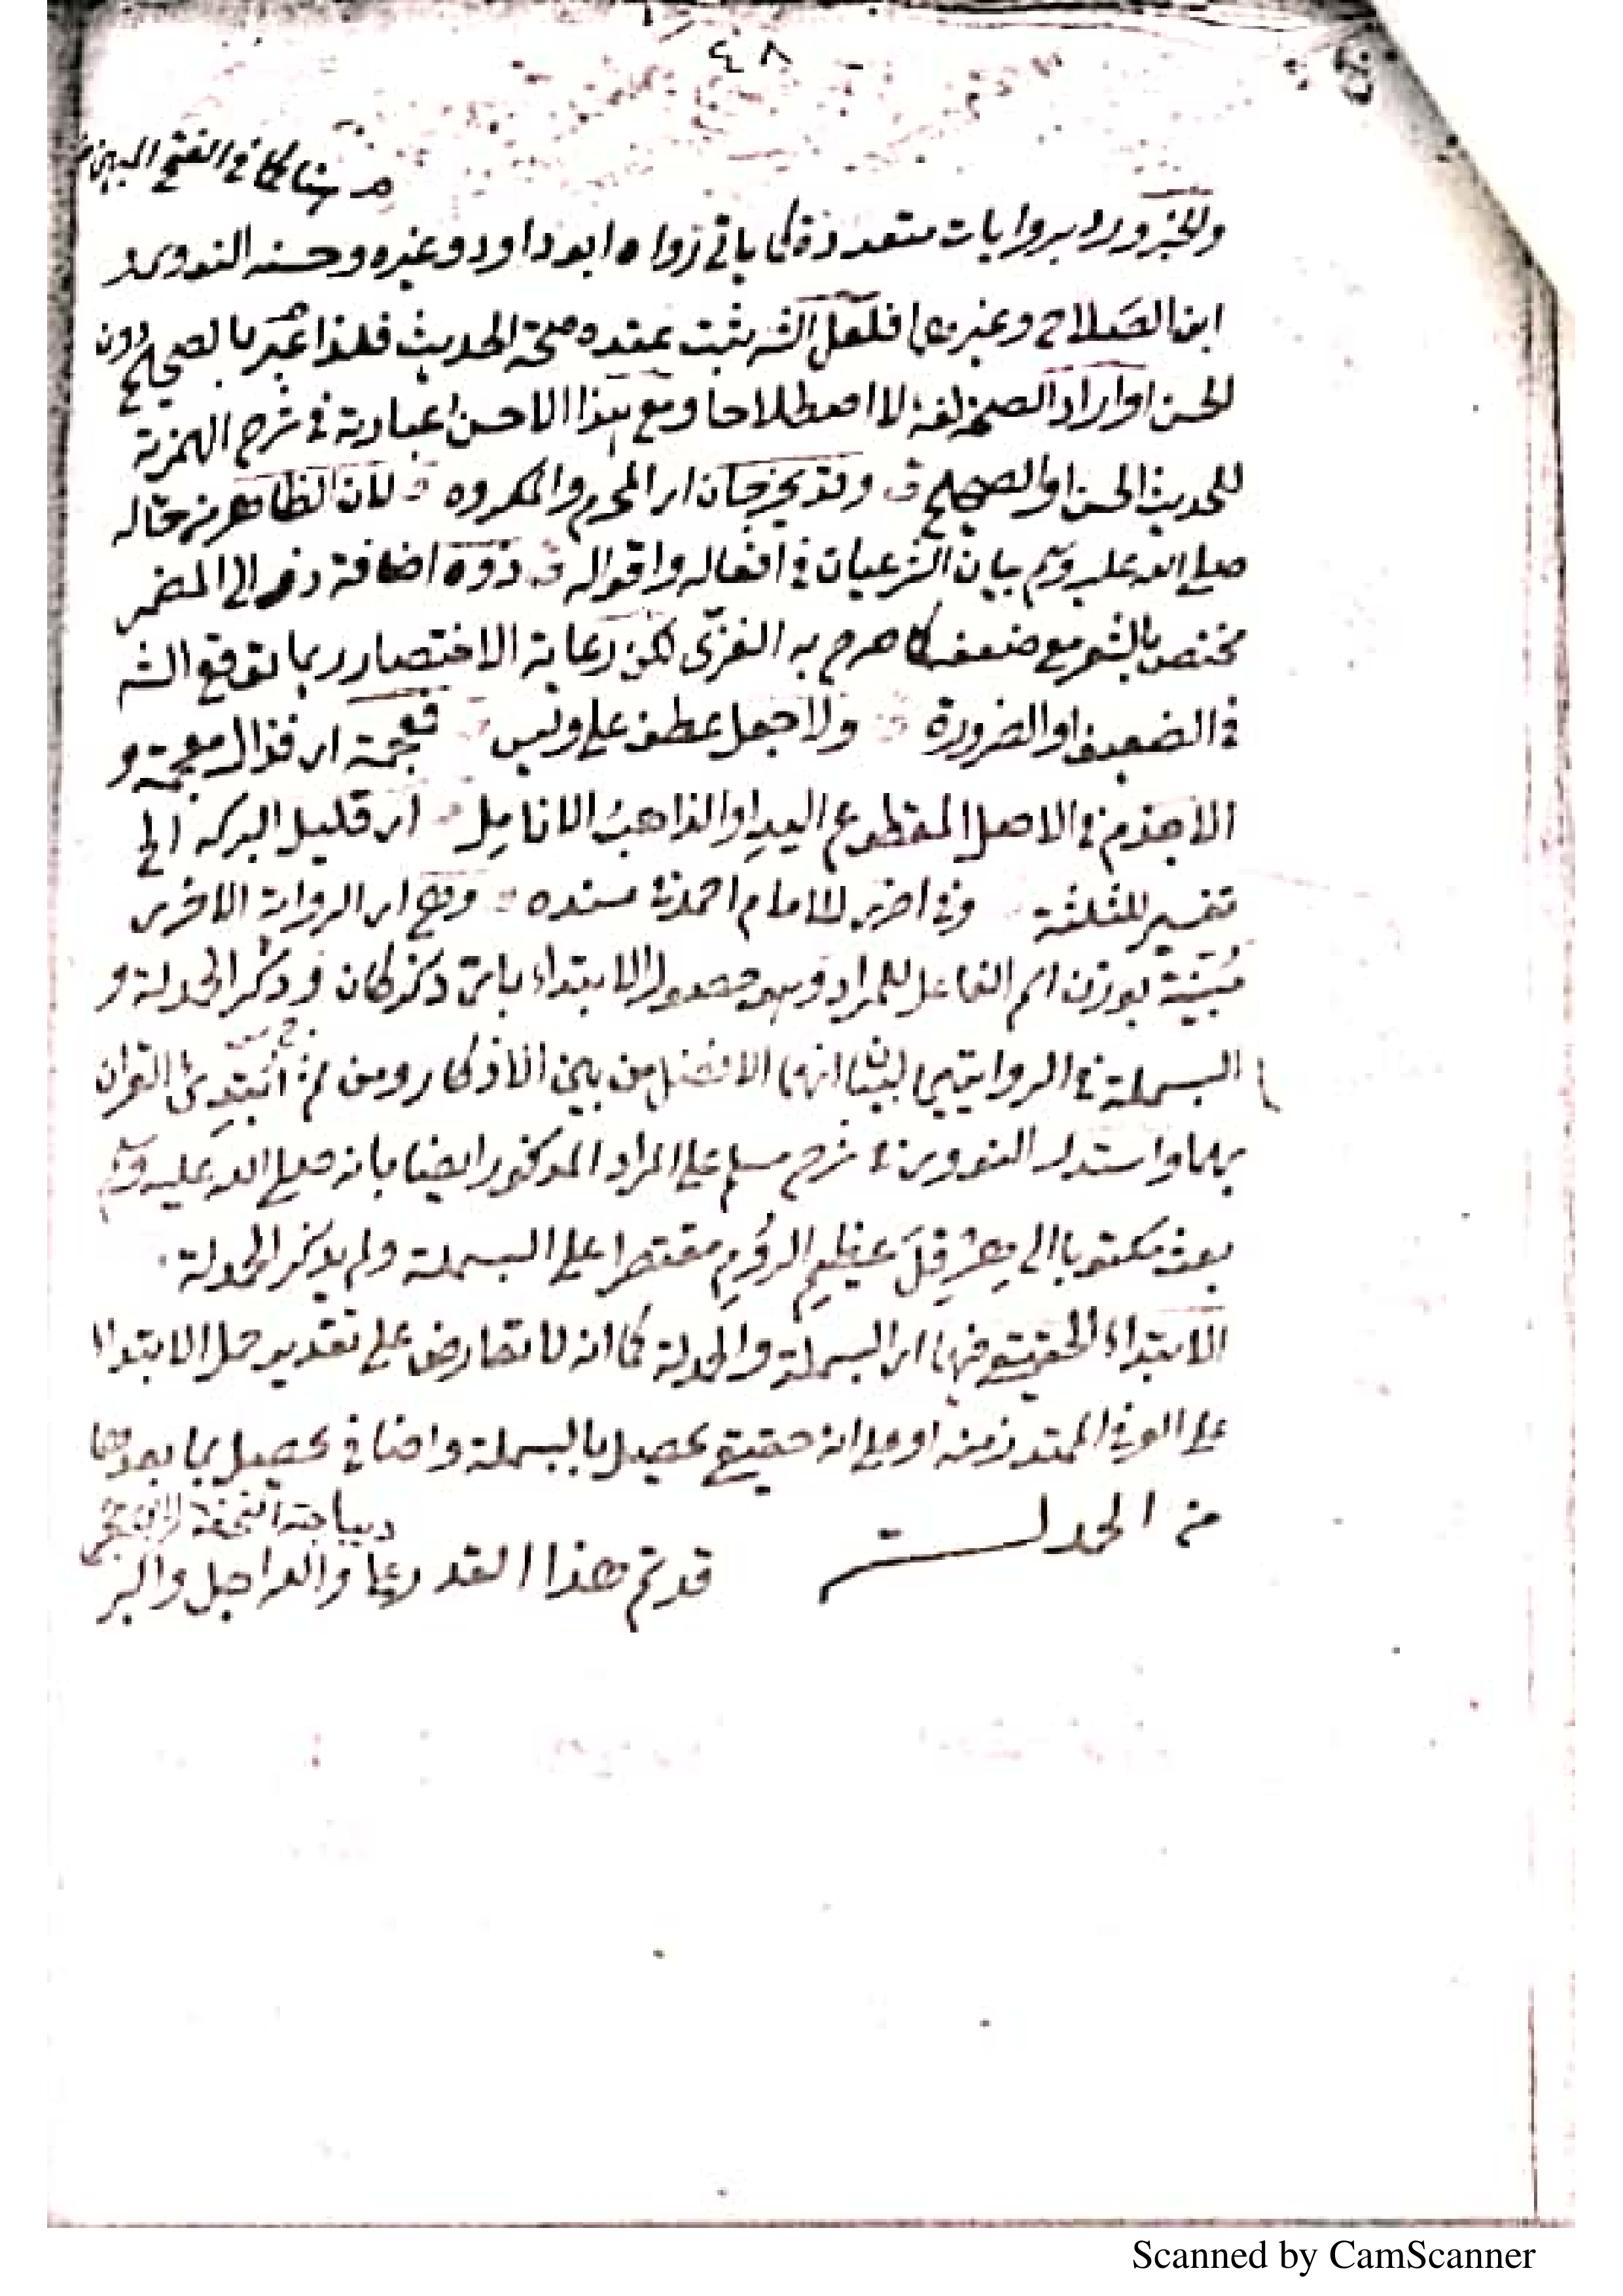 ٤٨
هنا كما في الفتح المبين
والخبر ورد بروايات متعددة كما ياتي رواه ابو داود وغيره وحسنه النووي
ابن الصلاح وغيرهما فلعل الش ثبت عنده صحة الحديث فلذا عبر بالصحيح دون
الحسن او اراد الصحة لغة لا اصطلاحا ومع هذا الاحسن عبارته في شرح الهمزية
للحديث الحسن او الصحيح وقد يخرجان اي المحرم والمكروه لان الظاهر من حاله
صلى الله عليه وسلم بيان الشرعيات في افعاله واقواله ذوه اضافة ذو الى المضمر
مختص بالشعر مع ضعف كما صرح به الغزي لكن رعاية الاختصار ربما توقع الش
في الضعيف او الضرورة ولاجل عطف على وليس فمعجمة اي فذال معجمة و
الاجذم في الاصل المقطوع اليد او الذاهب الانامل اي قليل البركة الى
تفسير للثلثة وفي اخرى للامام احمد في مسنده وهي اي الرواية الاخرى
مُبَيِّنة بوزن اسم الفاعل للمراد وهو حصول الابتداء باي ذكر كان وذكر الحمدلة و
البسملة في الروايتين لبيان انهما الافضل من بين الاذكار ومن ثم ابتدئ القران
بهما واستدل النووي في شرح مسلم على المراد المذكور ايضا بانه صلى الله عليه وسلم
بعث مكتوبا الى هِرَقِلَ عظيمِ الرومِ مقتصرا على البسملة ولم يذكر الحمدلة
الابتداء الحقيقي فيهما اي البسملة والحمدلة كما انه لا تعارض على تقدير حمل الابتدا
على العرفي الممتد زمنه او على انه حقيقي يحصل بالبسملة واضافي يحصل بما بعدها
من الحمدلة
ديباجة التحفة
قد تم هذا القدر
Scanned by CamScanner